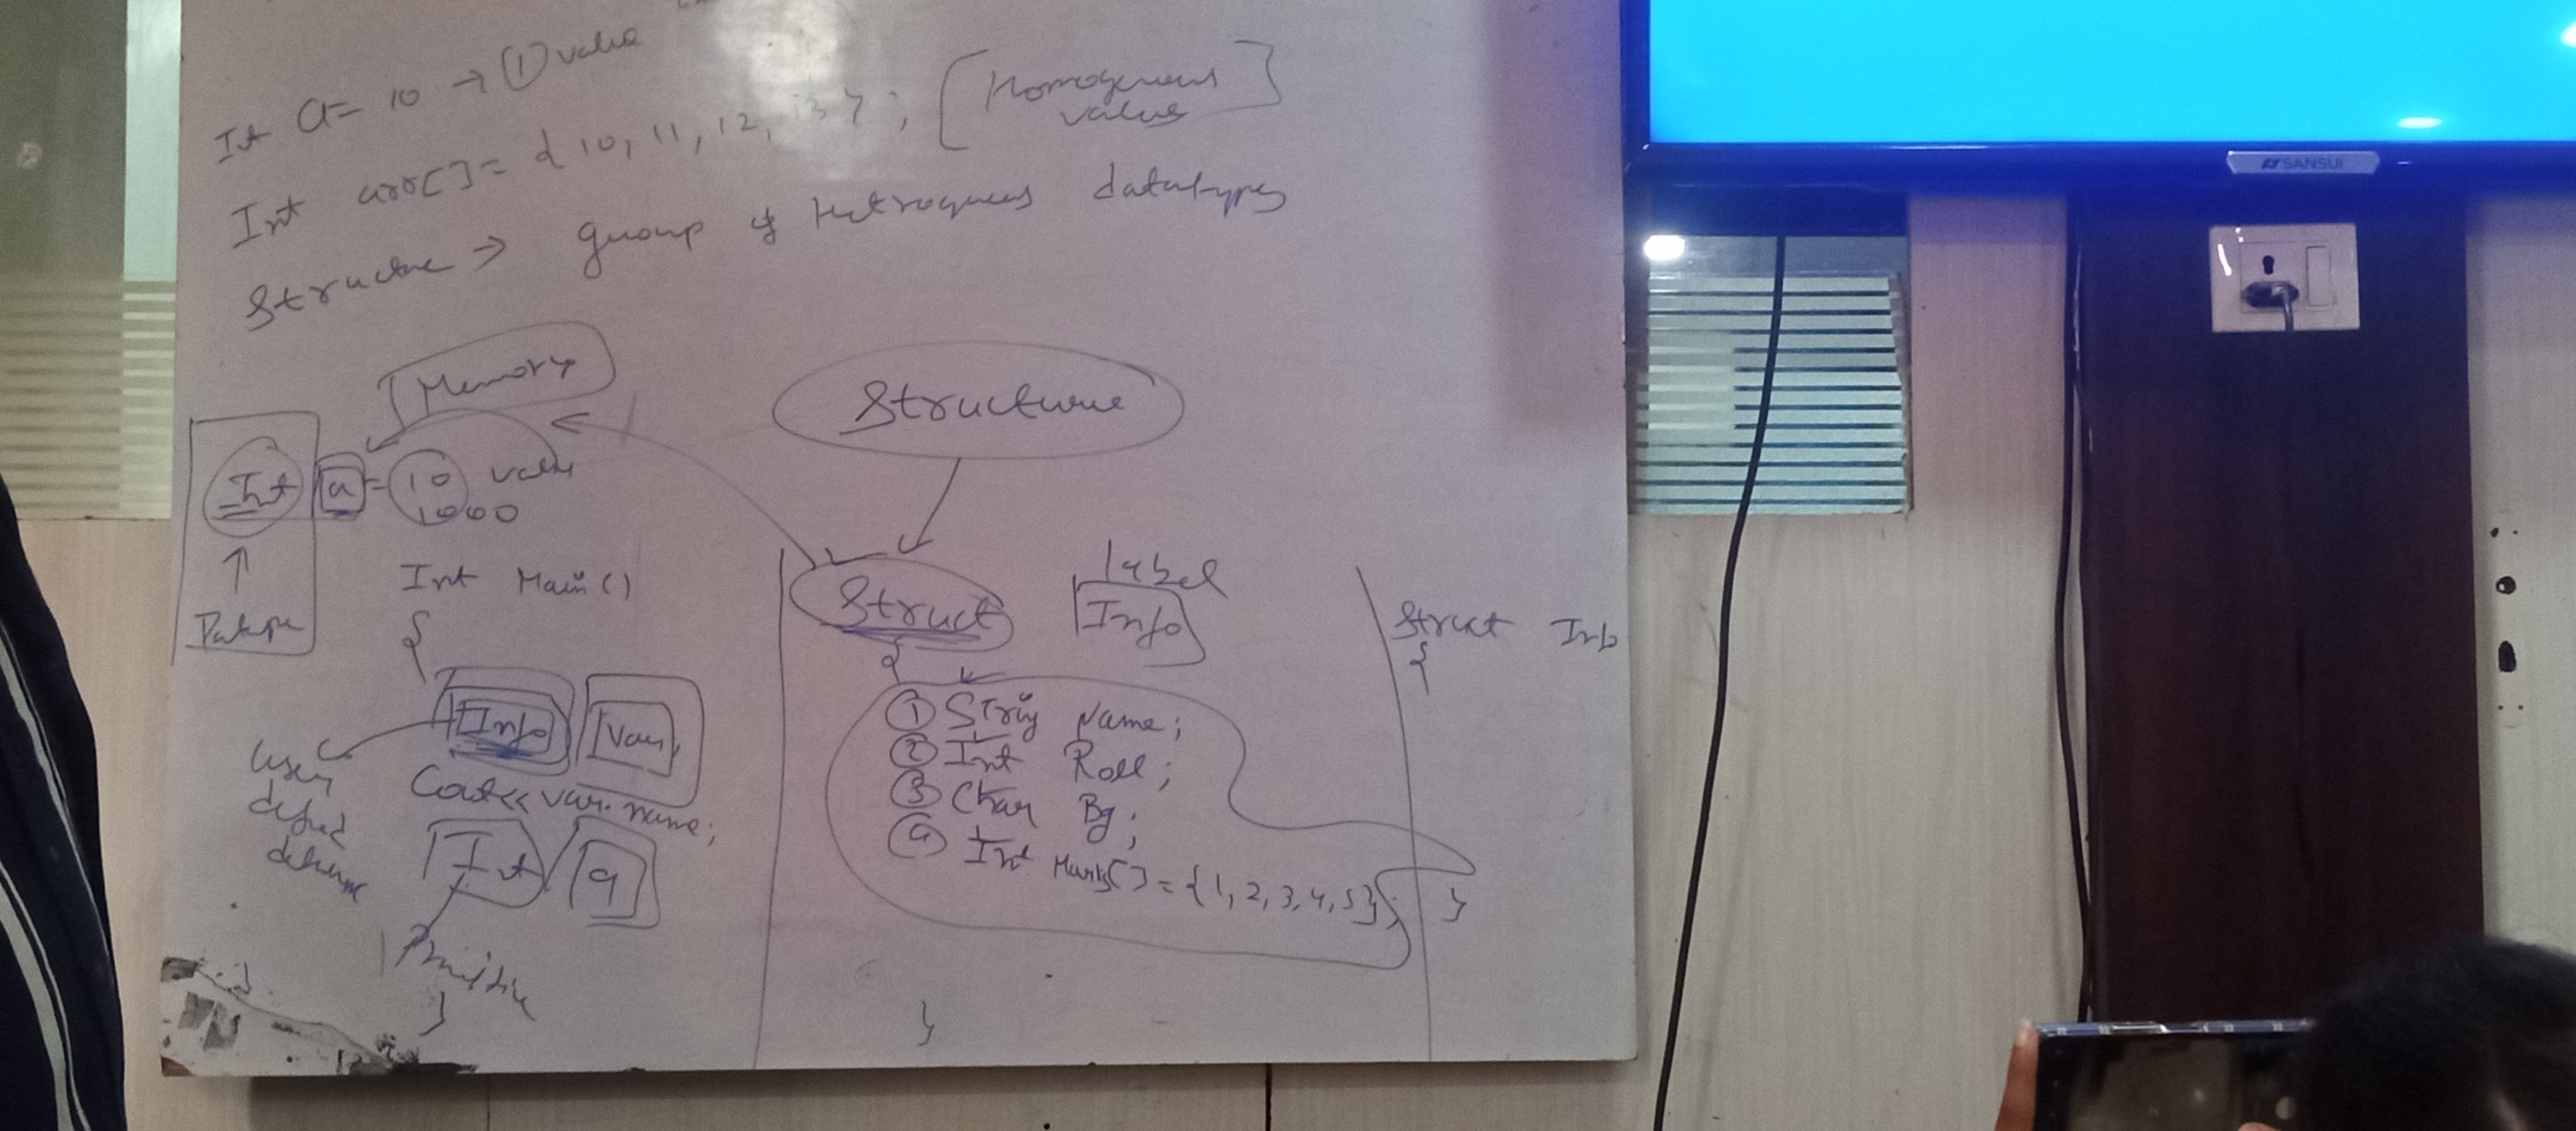 Int a = 10 → ① value
Int arr[] = { 10, 11, 12, 13 } ; [Homogenous
value]
Structure → group of Hetrogneus datatypes
Memory
Structure
Int a = 10 value
1000
Datatype
Int Main()
{
Info Var,
User
defined
Cout << var.name;
Int a
Primitive
}
label
Struct Info
{
① String Name;
② Int Roll;
③ Char Bg;
④ Int Marks[] = {1, 2, 3, 4, 5};
}
Struct Info
{
}
SANSUI